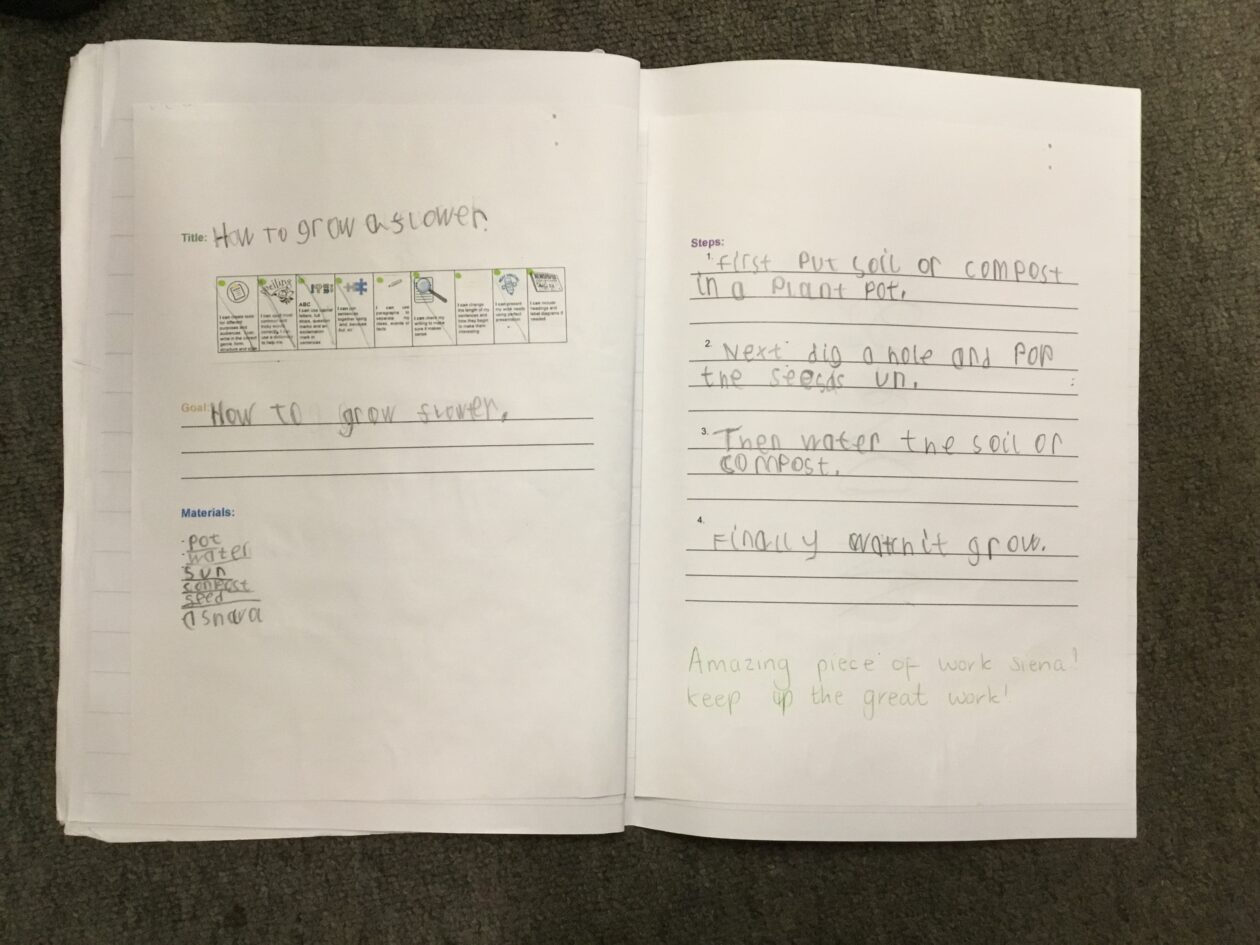 Title: How To grow a flower.
Spelling
ABC
I can create texts for different purposes and audiences. I can write in the correct genre, form, structure and style
I can spell most common and tricky words correctly. I can use a dictionary to help me.
I can use capital letters, full stops, question marks and an exclamation mark in sentences
I can join sentences together using and, because but, so
I can use paragraphs to separate my ideas, events or facts
I can check my writing to make sure it makes sense
I can change the length of my sentences and how they begin to make them interesting
I can present my work neatly using perfect presentation
I can include headings and label diagrams if needed
Goal: How to grow flower.
Materials:
· pot
· water
sun
compost
seed
Steps:
1. first put soil or compost
in a plant pot.
2. Next dig a hole and pop
the seeds un.
3. Then water the soil or
compost.
4. Finally watch it grow.
Amazing piece of work siena!
keep up the great work!